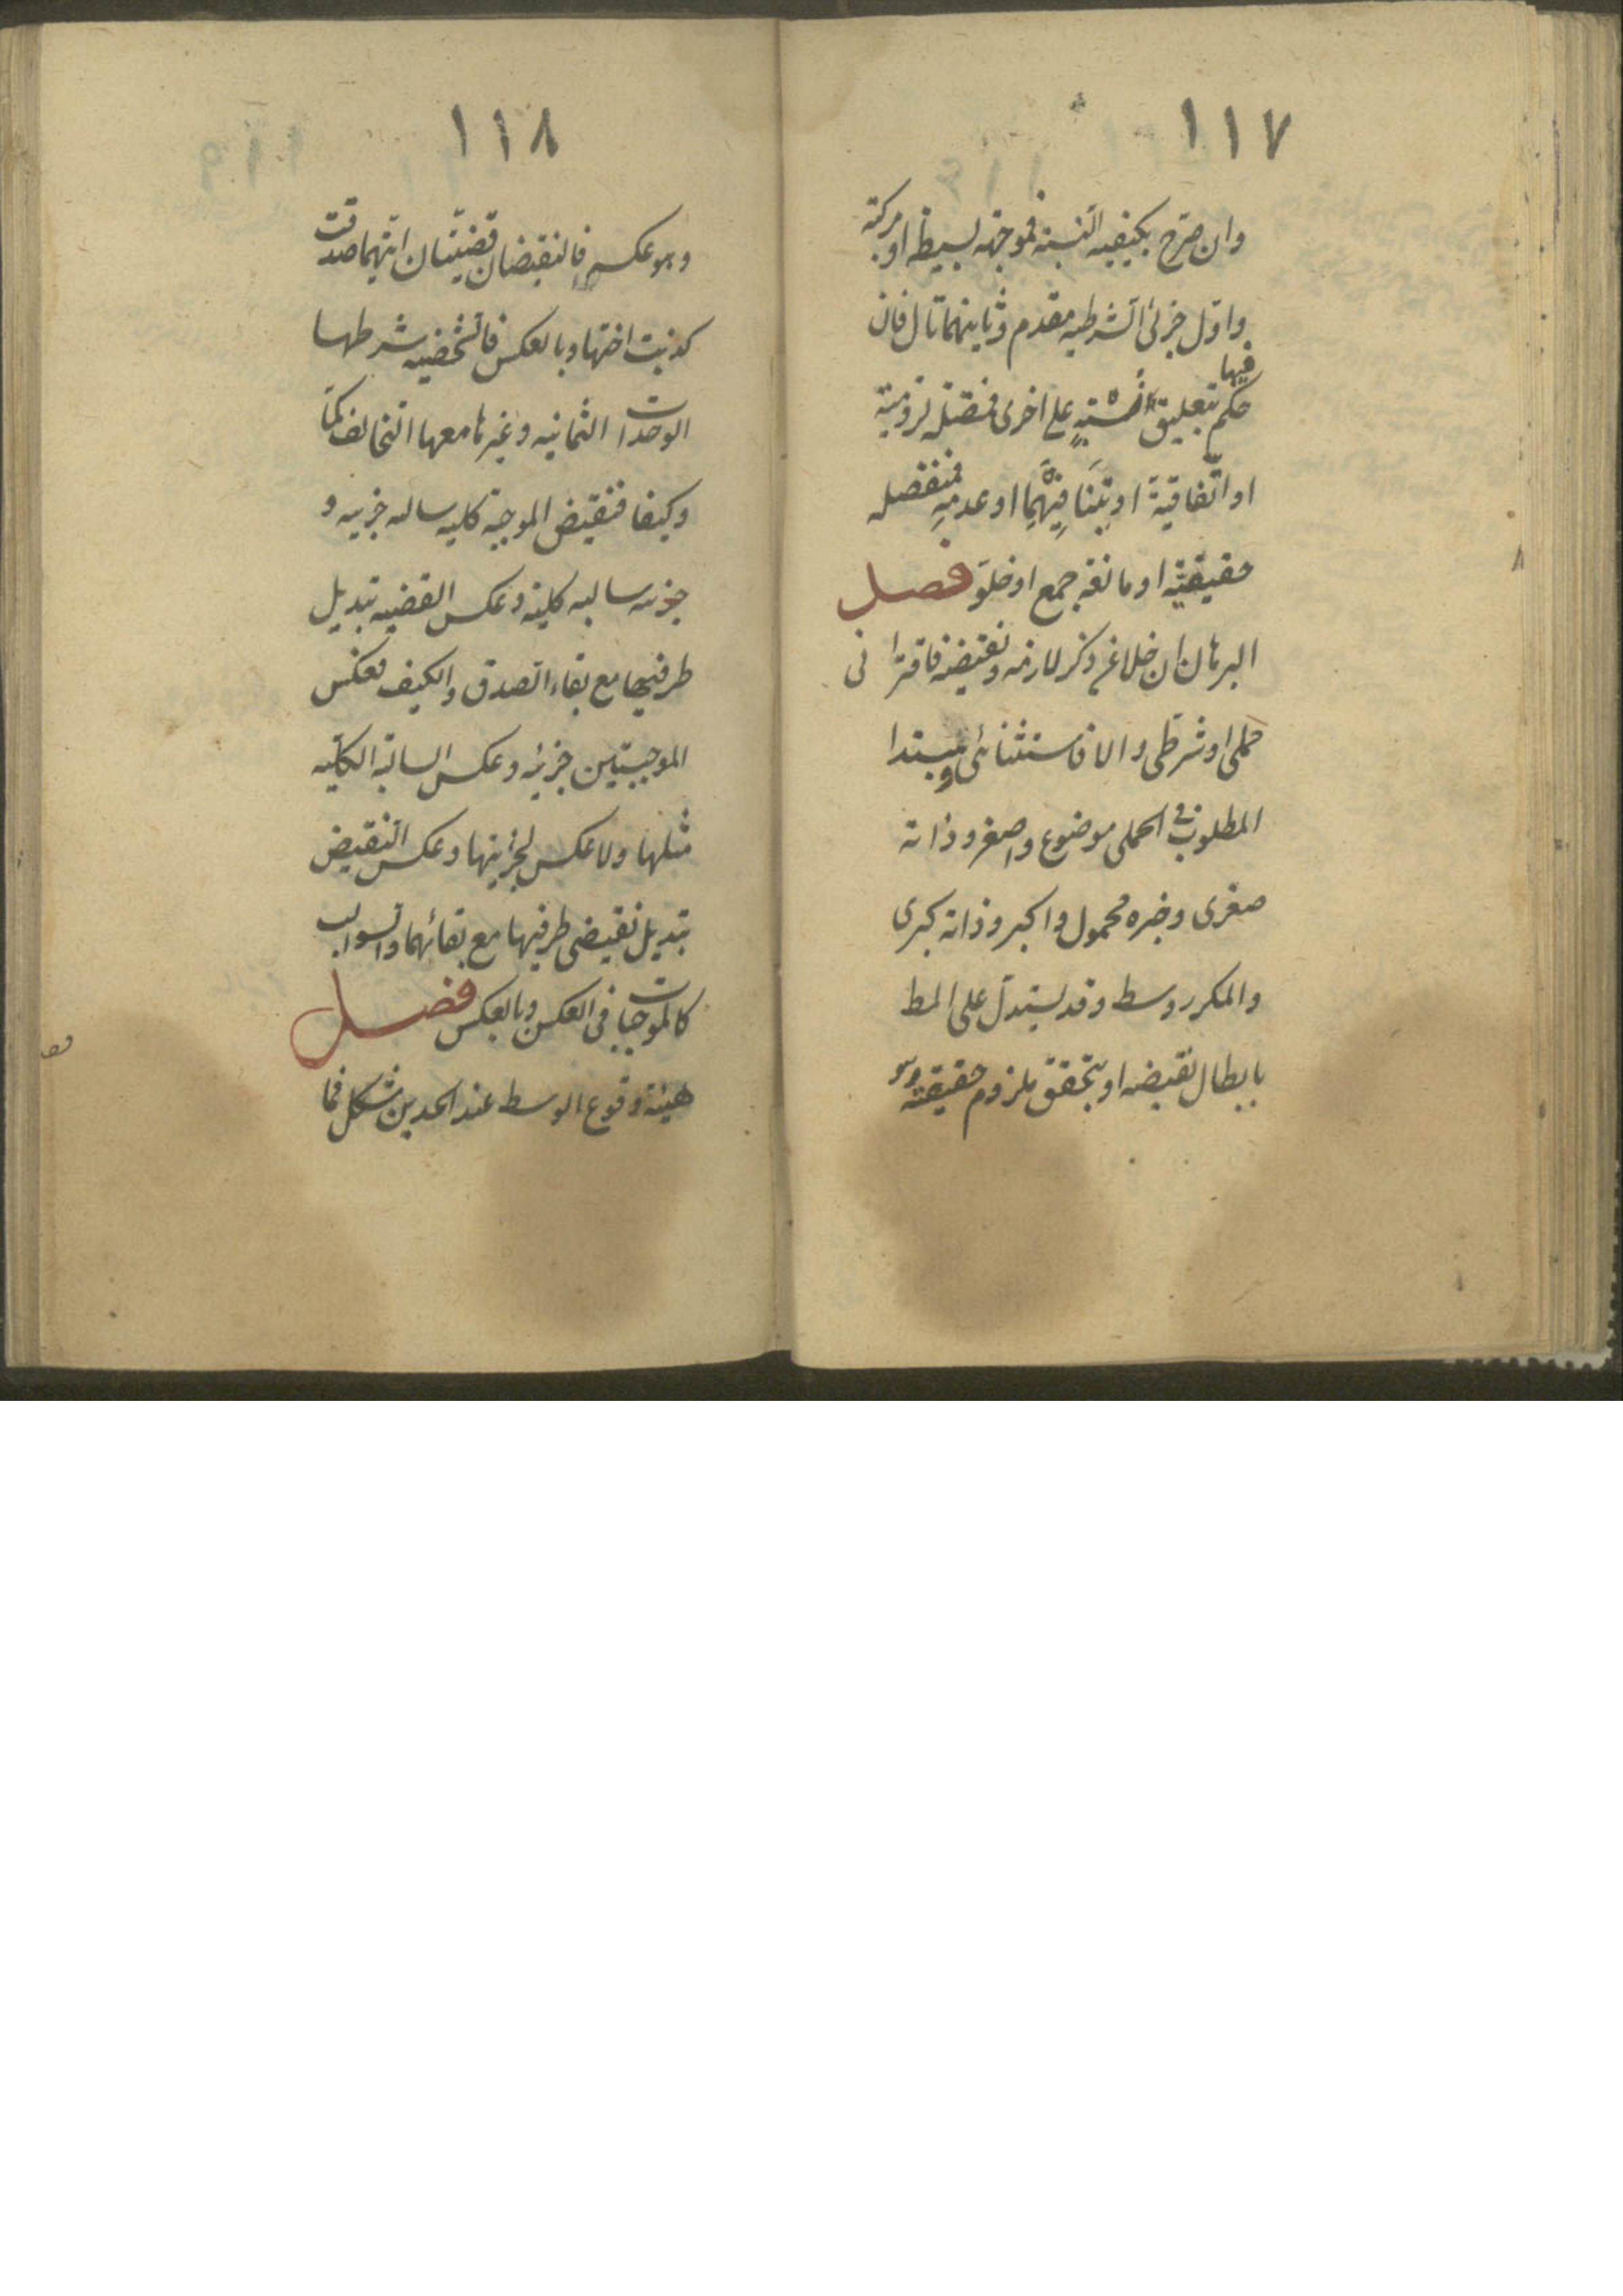 ١١٧
وان صرّح بكيفيه النسبة فموجهه بسيطه او مركبه
واول جزئي الشرطيه مقدم وثانيهما تال فان
حكم فيها بتعليق نسبة على اخرى فمتصله لزومية
او اتّفاقية او بتنافيهما او عدمه فمنفصله
حقيقيّة او مانعة جمع او خلو فصل
البرهان ان خلا عن ذكر لازمه ونقيضه فاقترانى
حملى او شرطى والا فاستثنائى ومبتدا
المطلوب فى الحملى موضوع واصغر وذاته
صغرى وخبره محمول واكبر وذاته كبرى
والمكرر وسط وقد يستدل على المط
بابطال نقيضه او بتحقق ملزوم حقيقته وهو
١١٨
وهو عكس فالنقيضان قضيتان ايتهما صدقت
كذبت اختها وبالعكس فالشخصيه شرطها
الوحدات الثمانيه وغيرها معها التخالف كمّا
وكيفا فنقيض الموجبة كليه سالبه جزييه و
جزئيه سالبه كلية وعكس القضيه تبديل
طرفيها مع بقاء الصدق والكيف فعكس
الموجبتين جزئيه وعكس السالبة الكليه
مثلها ولا عكس لجزئيتها وعكس النقيض
تبديل نقيضى طرفيها مع بقائهما والسوالب
كالموجبات فى العكس وبالعكس فصل
هيئة وقوع الوسط عند الحدين شكل فما